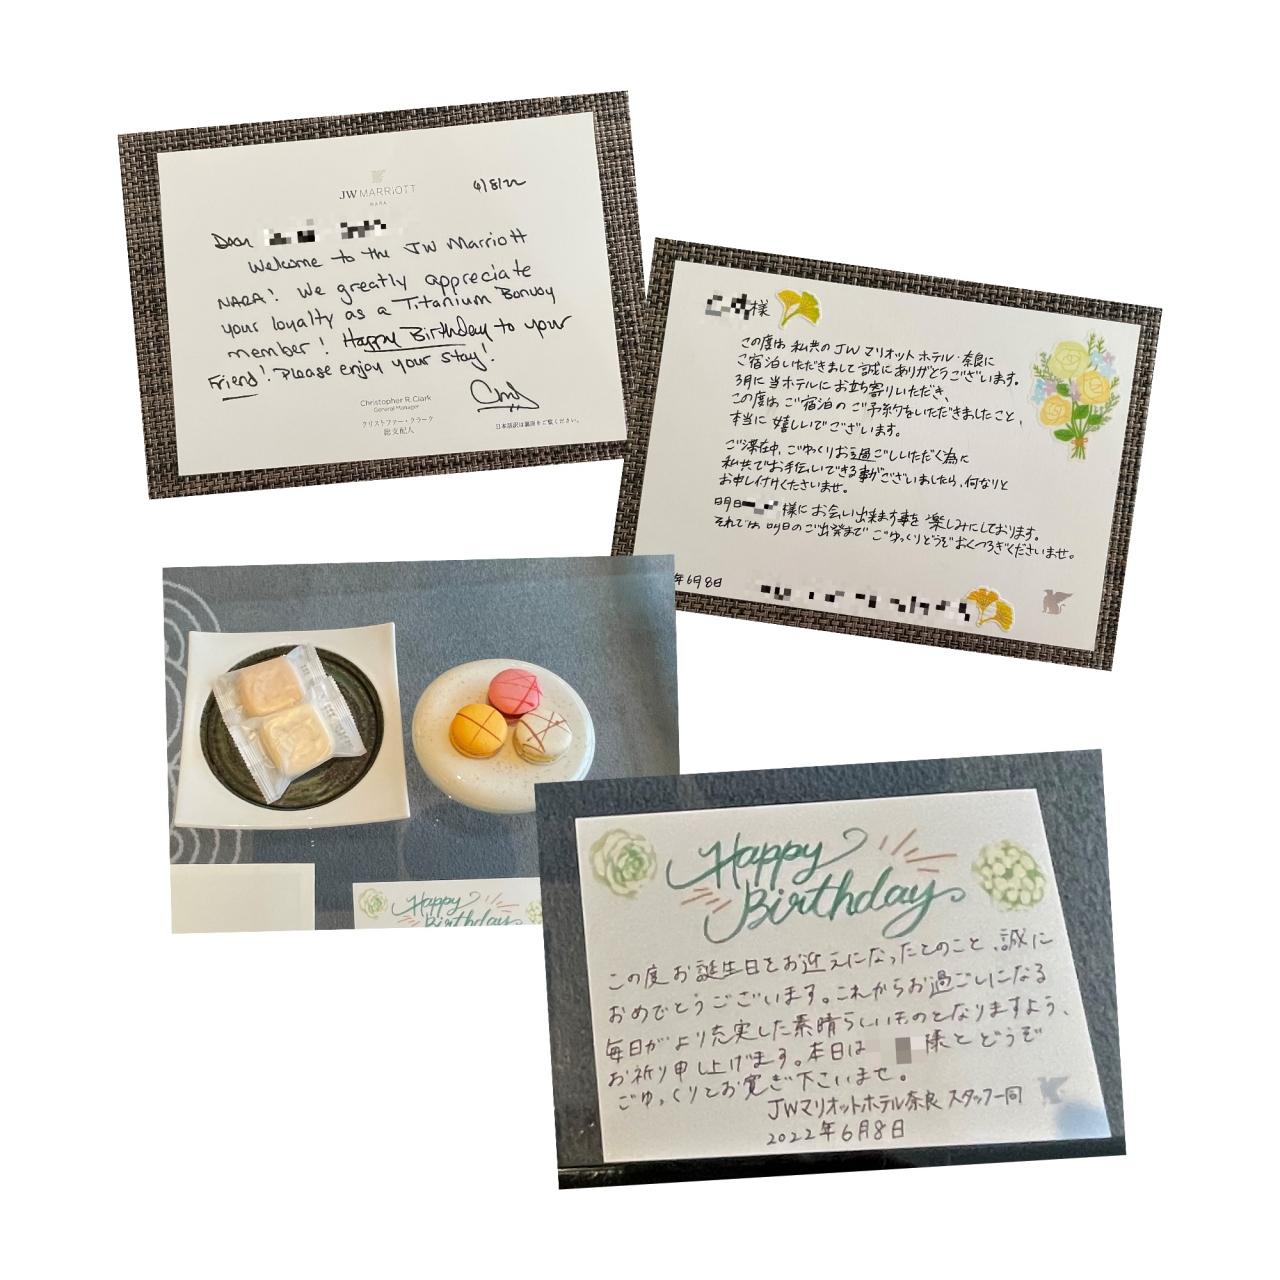 JW MARRIOTT
NARA
6/8/22
Dear
Welcome to the JW Marriott
NARA! We greatly appreciate
your loyalty as a Titanium Bonvoy
member! Happy Birthday to your
Friend! Please enjoy your stay!
Christopher R. Clark
General Manager
クリストファー・クラーク
総支配人
日本語訳は裏面をご覧ください。
様
この度は 私共の JW マリオット ホテル・奈良に
ご宿泊いただきまして 誠にありがとうございます。
3月に 当ホテルに お立ち寄りいただき、
この度は ご宿泊の ご予約をいただきましたこと、
本当に 嬉しいでございます。
ご滞在中、ごゆっくりお過ごしいただく為に
私共でお手伝いできる事がございましたら、何なりと
お申し付けくださいませ。
明日 様に お会い出来ます事を 楽しみにしております。
それでは 明日のご出発まで ごゆっくりどうぞ おくつろぎくださいませ。
年6月8日
Happy
Birthday
Happy
Birthday
この度お誕生日をお迎えになったとのこと、誠に
おめでとうございます。これからお過ごしになる
毎日がより充実した素晴らしいものとなりますよう、
お祈り申し上げます。本日は 様とどうぞ
ごゆっくりとお寛ぎ下さいませ。
JWマリオットホテル奈良 スタッフ一同
2022年6月8日